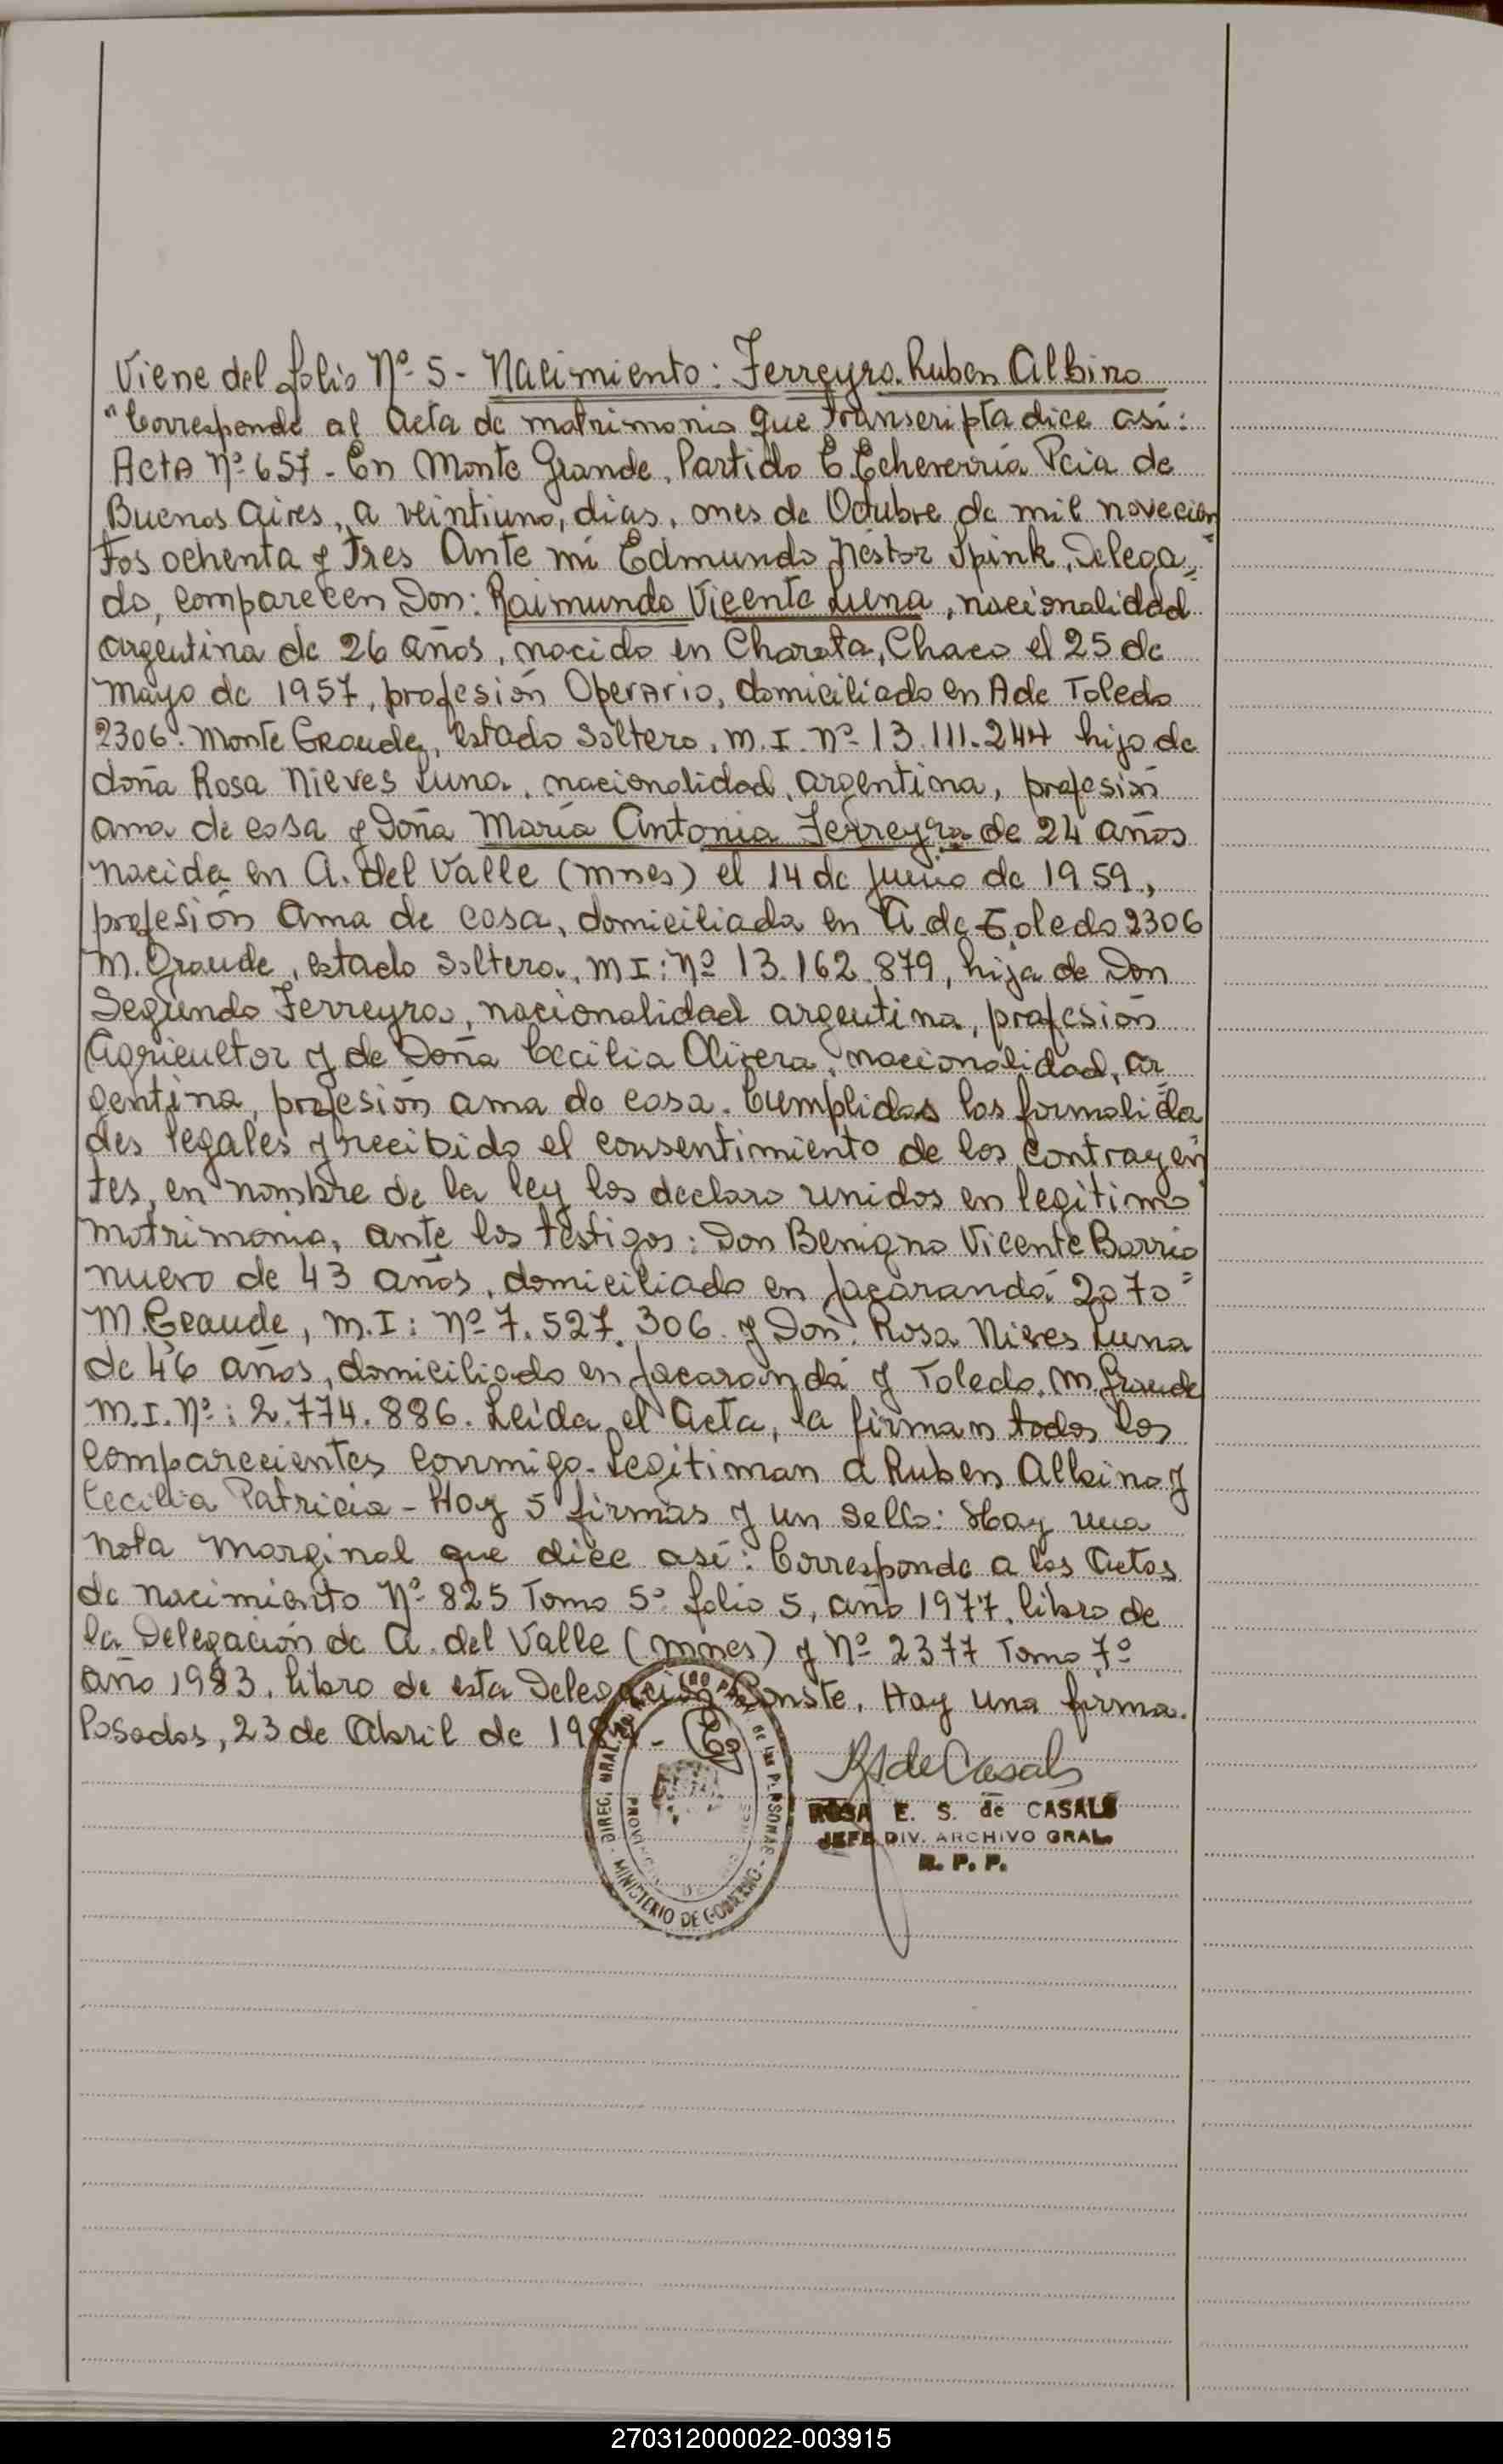 Viene del folio Nº 5 - Nacimiento: Ferreyra. Ruben Albino
"Corresponde al acta de matrimonio que transcripta dice así:
Acta Nº 657 - En Monte Grande, Partido E. Echeverría Pcia de
Buenos Aires, a veintiuno, dias, mes de Octubre de mil novecien
tos ochenta y tres Ante mí Edmundo Néstor Spink, Delega=
do, comparecen Don: Raimundo Vicente Luna, nacionalidad
argentina de 26 años, nacido en Charata, Chaco el 25 de
mayo de 1957, profesión Operario, domiciliado en A de Toledo
2306. Monte Grande, estado soltero, M.I. Nº 13.111.244 hijo de
doña Rosa Nieves Luna, nacionalidad, argentina, profesión
ama de casa y Doña María Antonia Ferreyra de 24 años
nacida en A. del Valle (Mnes) el 14 de de 1959,
profesión Ama de casa, domiciliada en A. de Toledo 2306
M. Grande, estado soltera, M I: Nº 13.162.879, hija de Don
Segundo Ferreyra, nacionalidad argentina, profesión
Agricultor y de Doña Cecilia Olivera, nacionalidad, ar
gentina, profesión ama de casa. Cumplidas las formalida
des legales y recibido el consentimiento de los contrayen
tes, en nombre de la ley los declaro unidos en legítimo
matrimonio, ante los testigos: Don Benigno Vicente Barrio
nuevo de 43 años, domiciliado en Jacarandá 2070=
M. Grande, M.I: Nº 7.527.306. y Don: Rosa Nieves Luna
de 46 años, domiciliado en Jacarandá y Toledo. M. Grande
M.I. Nº: 2.774.886. Leída el Acta, la firman todos los
comparecientes conmigo. Legitiman a Ruben Albino y
Cecilia Patricia - Hay 5 firmas y un sello: Hay una
nota marginal que dice así: Corresponde a las Actas
de nacimiento Nº 825 Tomo 5º folio 5, año 1977. libro de
la Delegación de A. del Valle (Mnes) y Nº 2377 Tomo 7º
año 1983. libro de esta Delegación Conste. Hay una firma.
Posadas, 23 de Abril de
R S de Casals
ROSA E. S. de CASALS
JEFE DIV. ARCHIVO GRAL.
R. P. P.
DE LAS PERSONAS - MINISTERIO DE GOBIERNO - DIREC. GRAL.
270312000022-003915